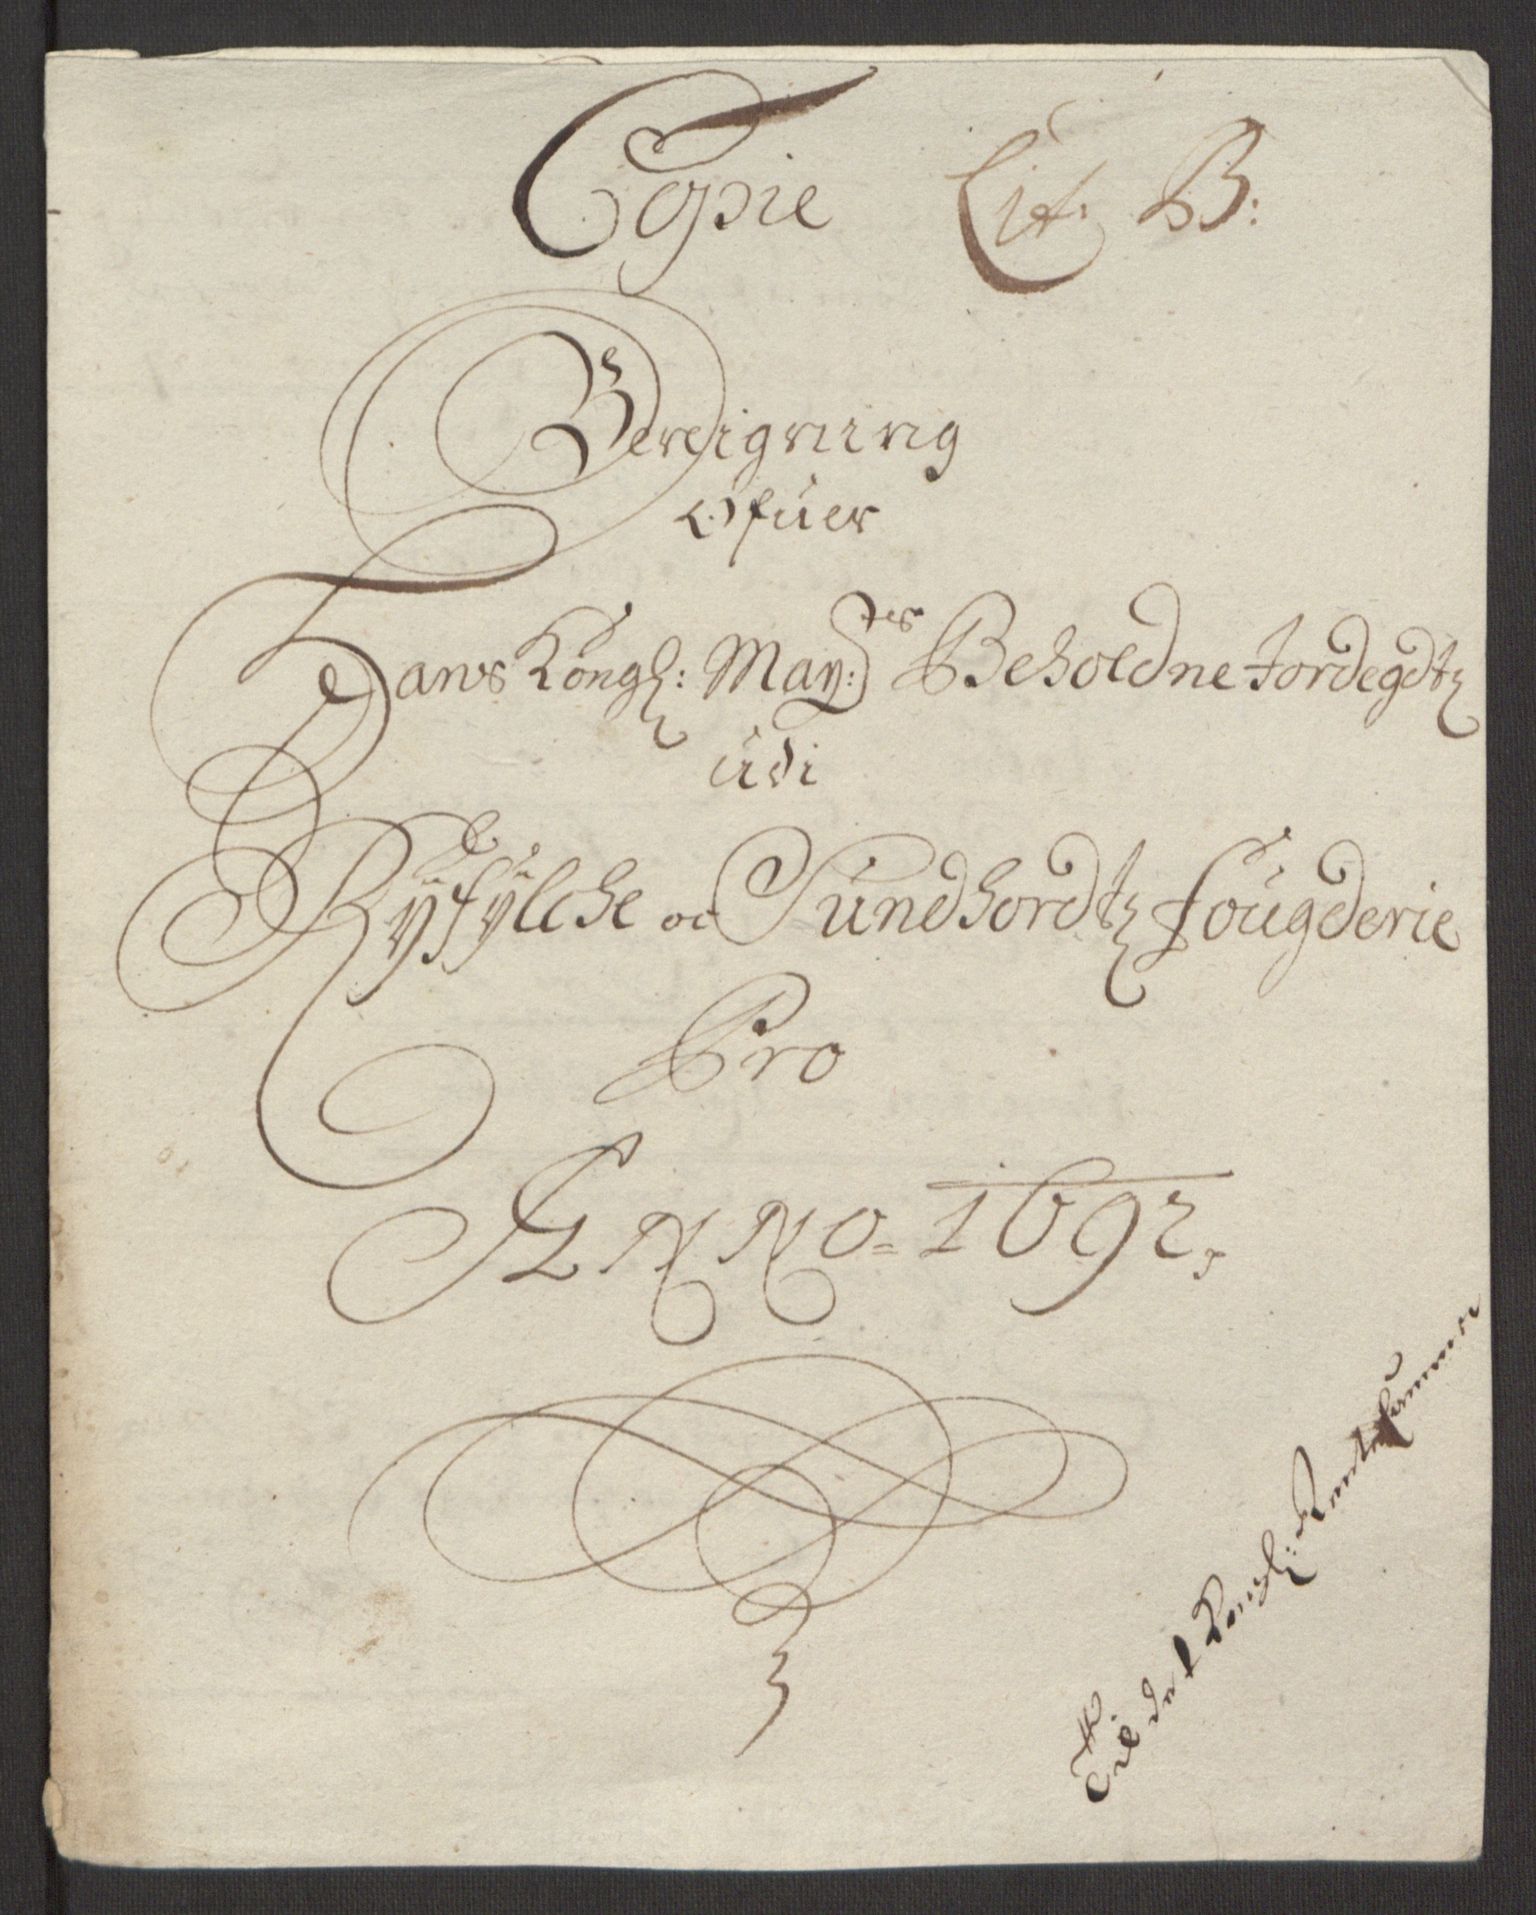 Copie Lit: B:
Bereigning
Ofuer
Hans Kongl: May:tes Beholdne Jordegdtz
udi
Ryfylche oc Sundhordtz fougderie
Pro
ANNO = 1692,
Til det Kongl: Rentekammer